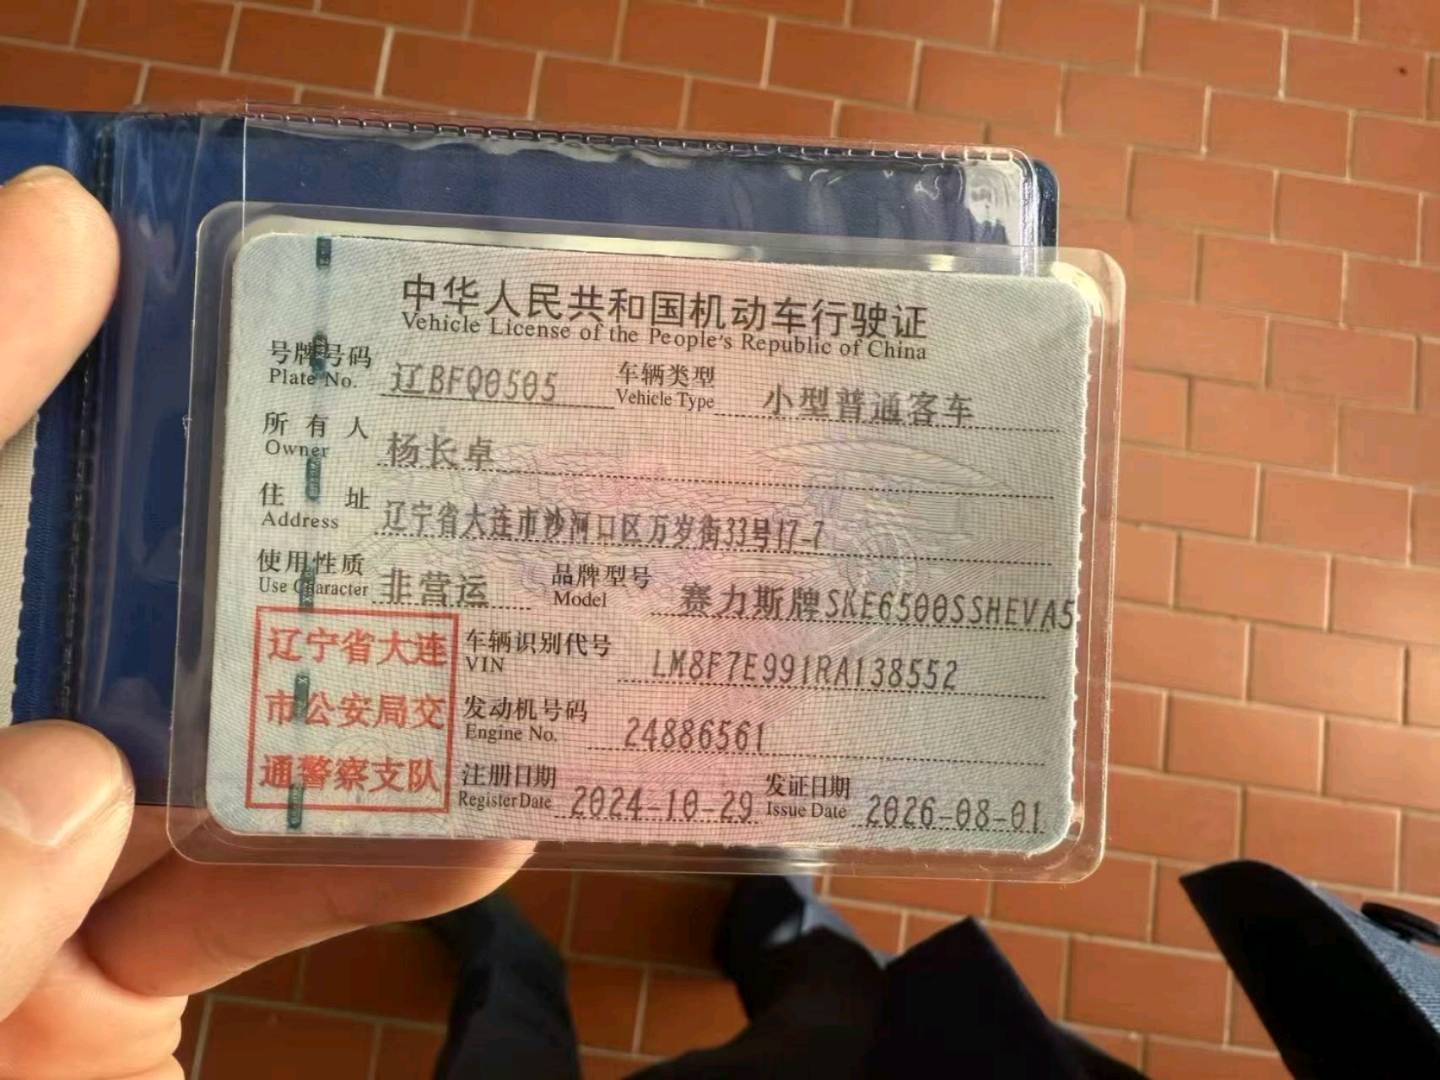 中华人民共和国机动车行驶证
Vehicle License of the People's Republic of China
号牌号码 辽BFQ0505 车辆类型 小型普通客车
Plate No. Vehicle Type
所有人 杨长卓
Owner
住址 辽宁省大连市沙河口区万岁街33号17-7
Address
使用性质 非营运 品牌型号 赛力斯牌SKE6500SSHEVA5
Use Character Model
辽宁省大连
市公安局交
通警察支队
车辆识别代号 LM8F7E991RA138552
VIN
发动机号码 24886561
Engine No.
注册日期 2024-10-29 发证日期 2026-08-01
Register Date Issue Date